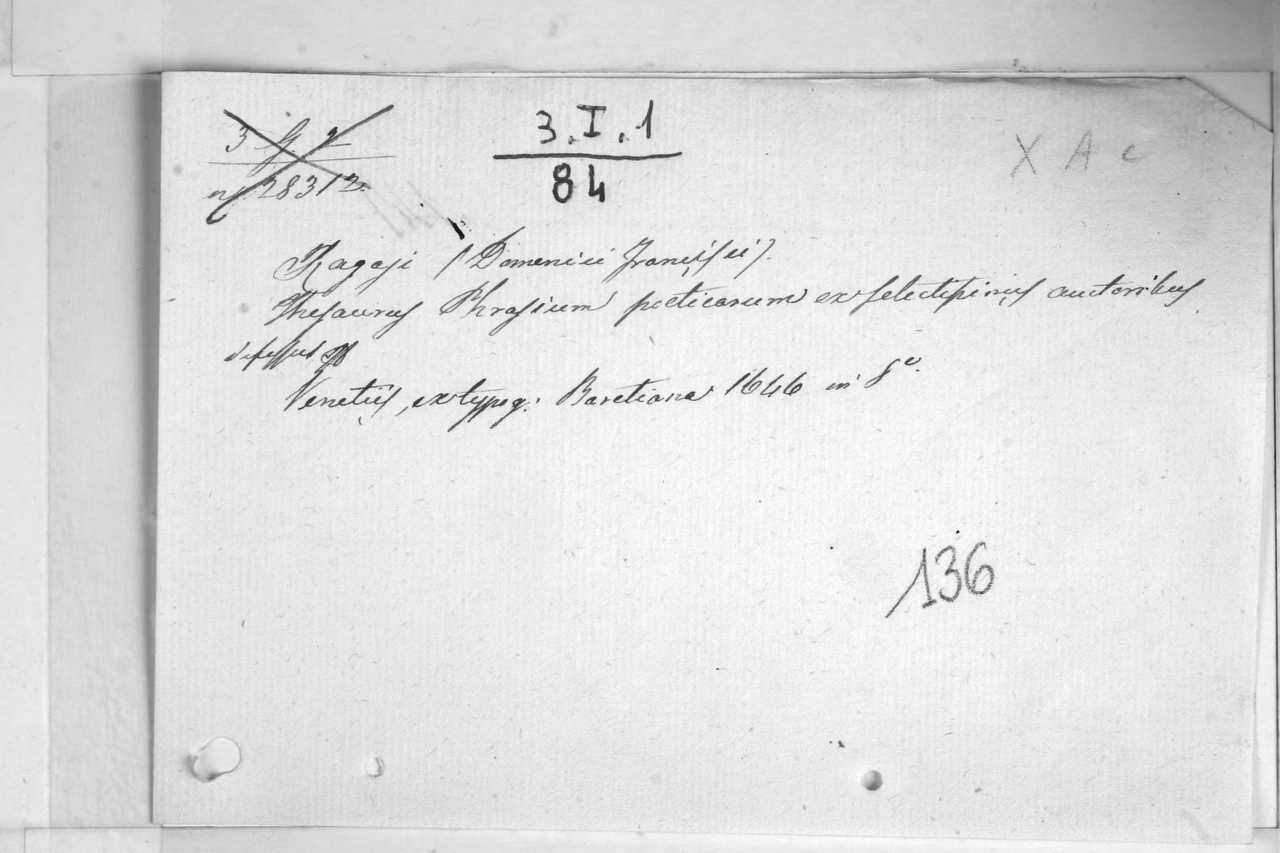 3 g 2
n 28312.
3.I.1
84
X A c
Ragasi (Domenici Francisci).
Thesaurus Phrasium poeticarum ex selectissimis auctoribus
Venetiis, ex typog: Baretiana 1646 in 8°.
136